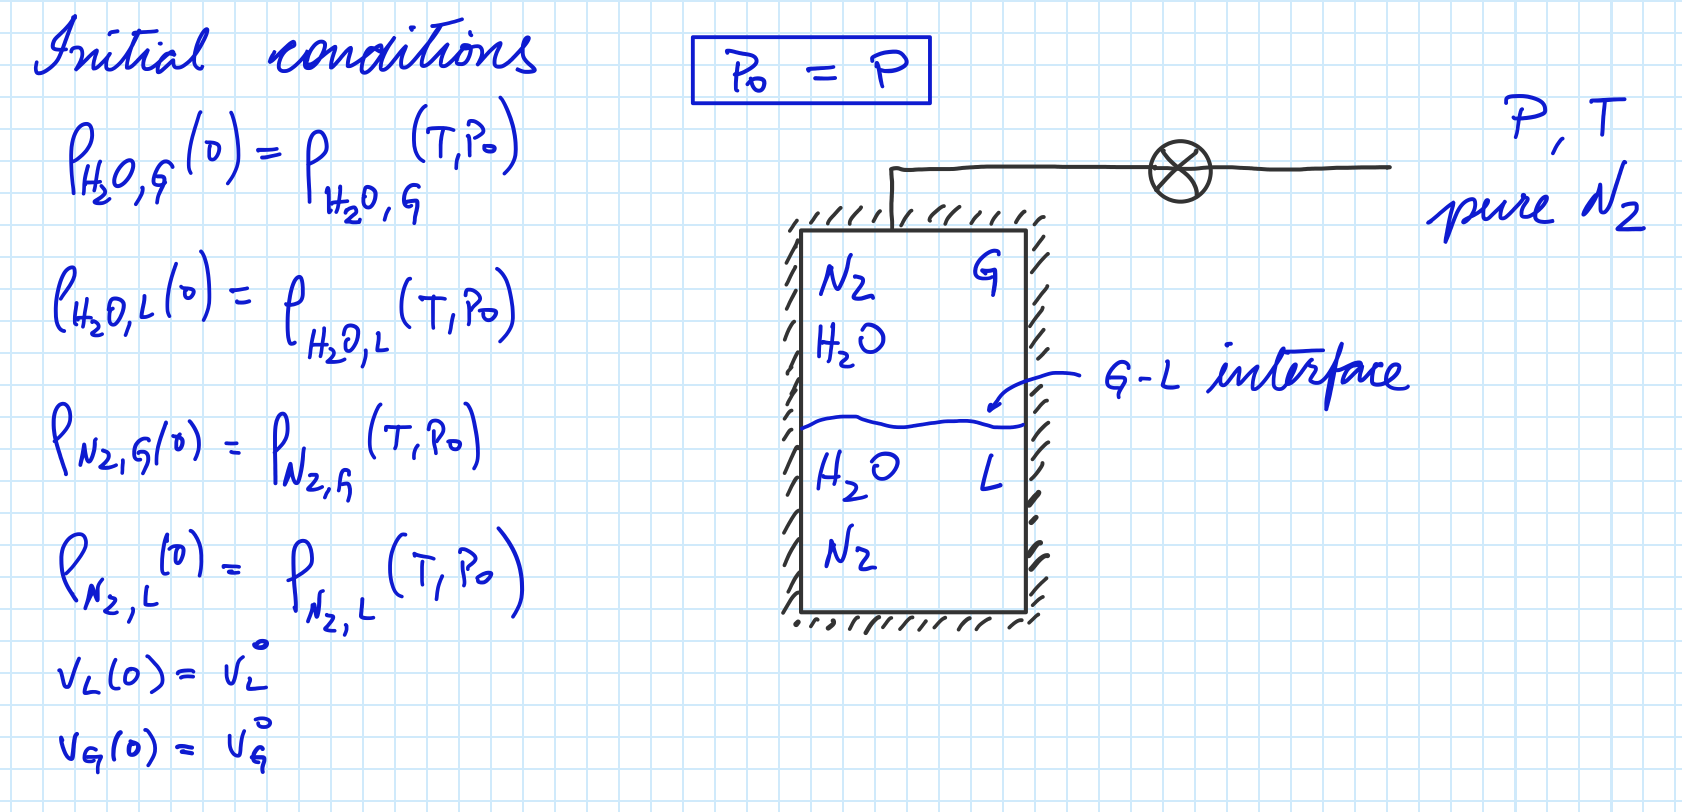 Initial conditions
P₀ = P
ρ_H₂O,G (0) = ρ_H₂O,G (T, P₀)
ρ_H₂O,L (0) = ρ_H₂O,L (T, P₀)
ρ_N₂,G (0) = ρ_N₂,G (T, P₀)
ρ_N₂,L (0) = ρ_N₂,L (T, P₀)
V_L (0) = V_L°
V_G (0) = V_G°
P, T
pure N₂
N₂ G
H₂O
G-L interface
H₂O L
N₂